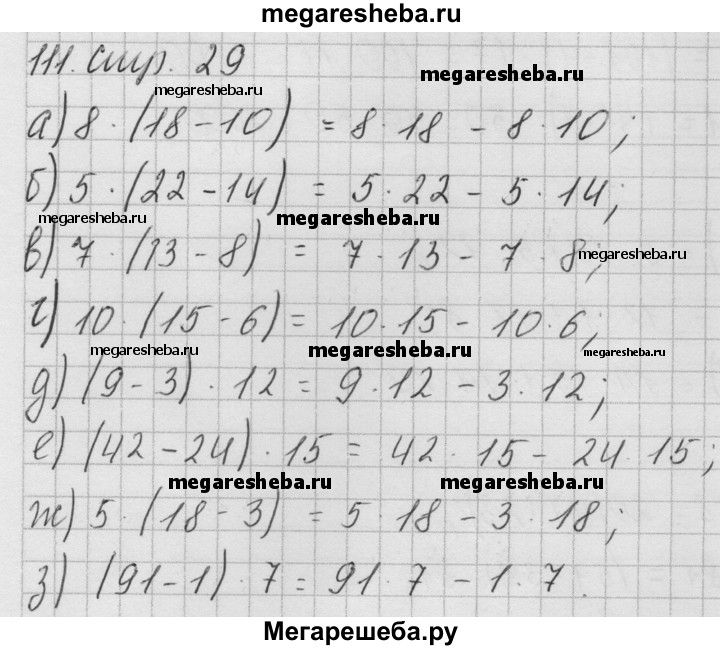 megaresheba.ru
111. стр. 29
megaresheba.ru megaresheba.ru
а) 8 · (18 - 10) = 8 · 18 - 8 · 10;
б) 5 · (22 - 14) = 5 · 22 - 5 · 14;
megaresheba.ru megaresheba.ru
в) 7 · (13 - 8) = 7 · 13 - 7 · 8;
megaresheba.ru
г) 10 · (15 - 6) = 10 · 15 - 10 · 6;
megaresheba.ru megaresheba.ru megaresheba.ru
д) (9 - 3) · 12 = 9 · 12 - 3 · 12;
е) (42 - 24) · 15 = 42 · 15 - 24 · 15;
megaresheba.ru megaresheba.ru
ж) 5 · (18 - 3) = 5 · 18 - 3 · 18;
з) (91 - 1) · 7 = 91 · 7 - 1 · 7.
Мегарешеба.ру